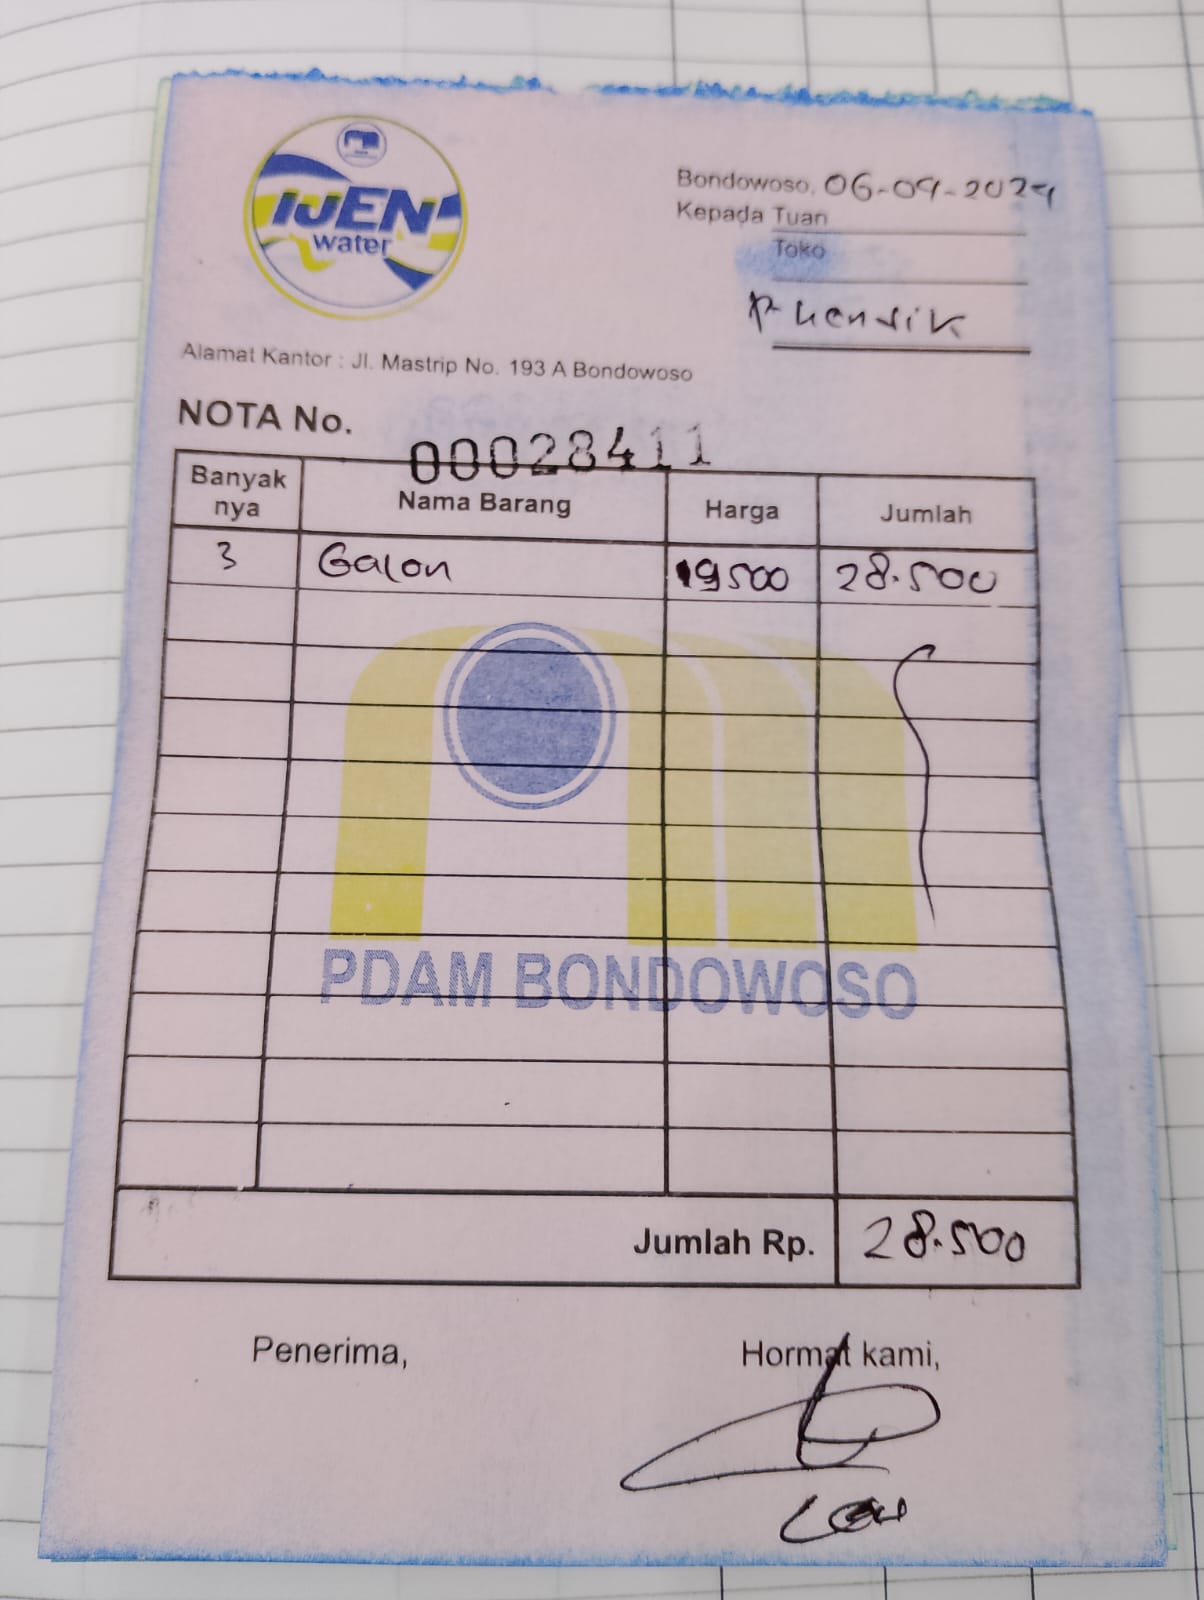 IJEN
water
Bondowoso, 06-09-2024
Kepada Tuan
Toko
Alamat Kantor : Jl. Mastrip No. 193 A Bondowoso
NOTA No. 00028411
Banyak nya Nama Barang Harga Jumlah
3 Galon 9500 28.500
PDAM BONDOWOSO
Jumlah Rp. 28.500
Penerima, Hormat kami,